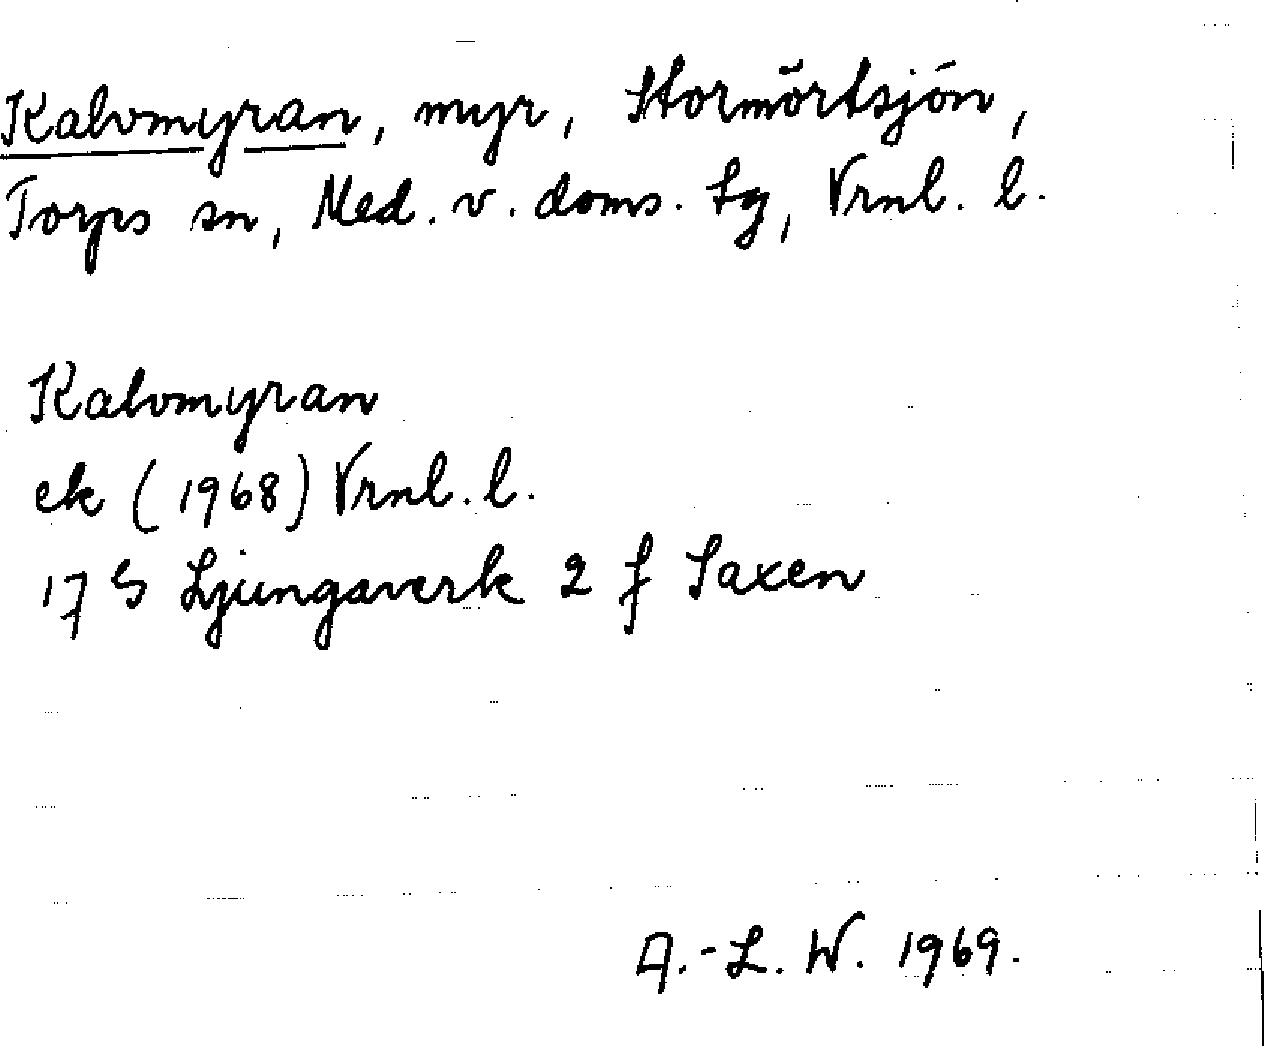 Kalvmyran, myr, Stormörtsjön,
Torps sn, Med. v. doms. tg, Vrnl. l.
Kalvmyran
ek (1968) Vrnl. l.
17 G Ljungaverk 2 f Saxen
A.-L. W. 1969.